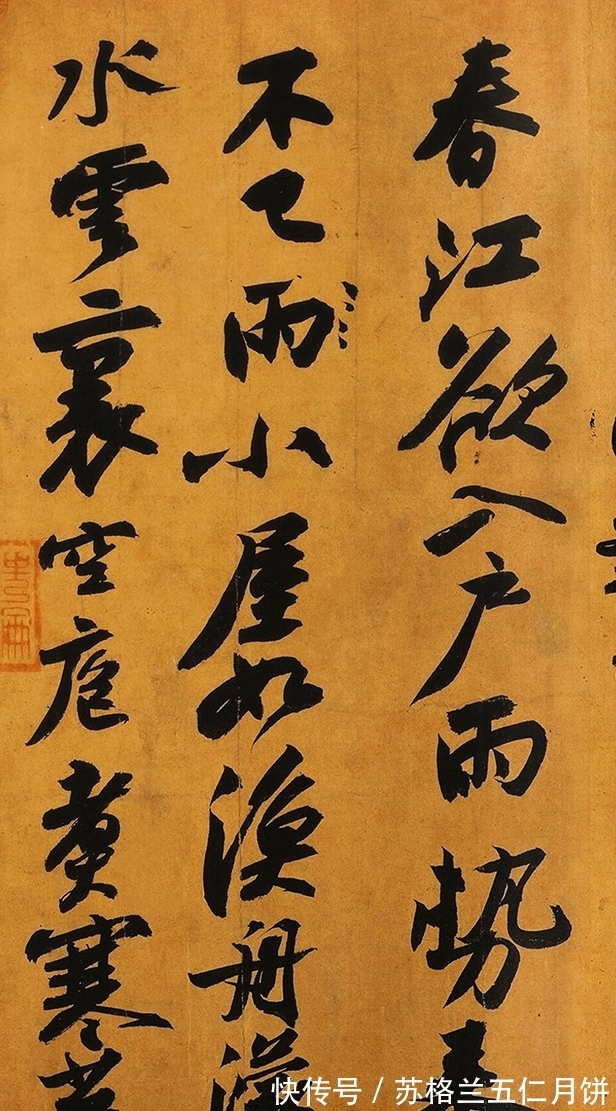 春江欲入户雨勢
不已雨小屋如漁舟
水雲裏空庖煮寒
快传号 / 苏格兰五仁月饼